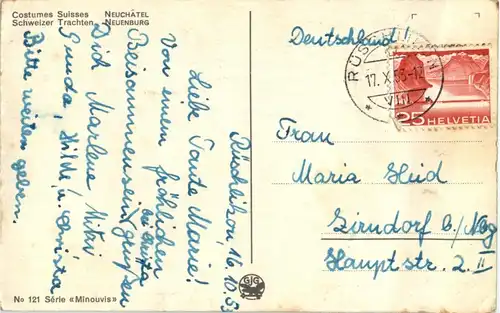 Costumes Suisses NEUCHÂTEL
Schweizer Trachten NEUENBURG
Rüschlikon, 16.10.53
Liebe Tante Marie!
Von einem fröhlichen
Beisammensein grüßen
Dich Marlene
Gunda, Hilde u. Christa
Bitte weiter geben.
No 121 Série «Minouvis»
GJG
Deutschland!
RÜSCHLIKON
17.X.53
VIII
25 HELVETIA
Frau
Maria Heid
Zirndorf b/ Nbg
Hauptstr. 2 II